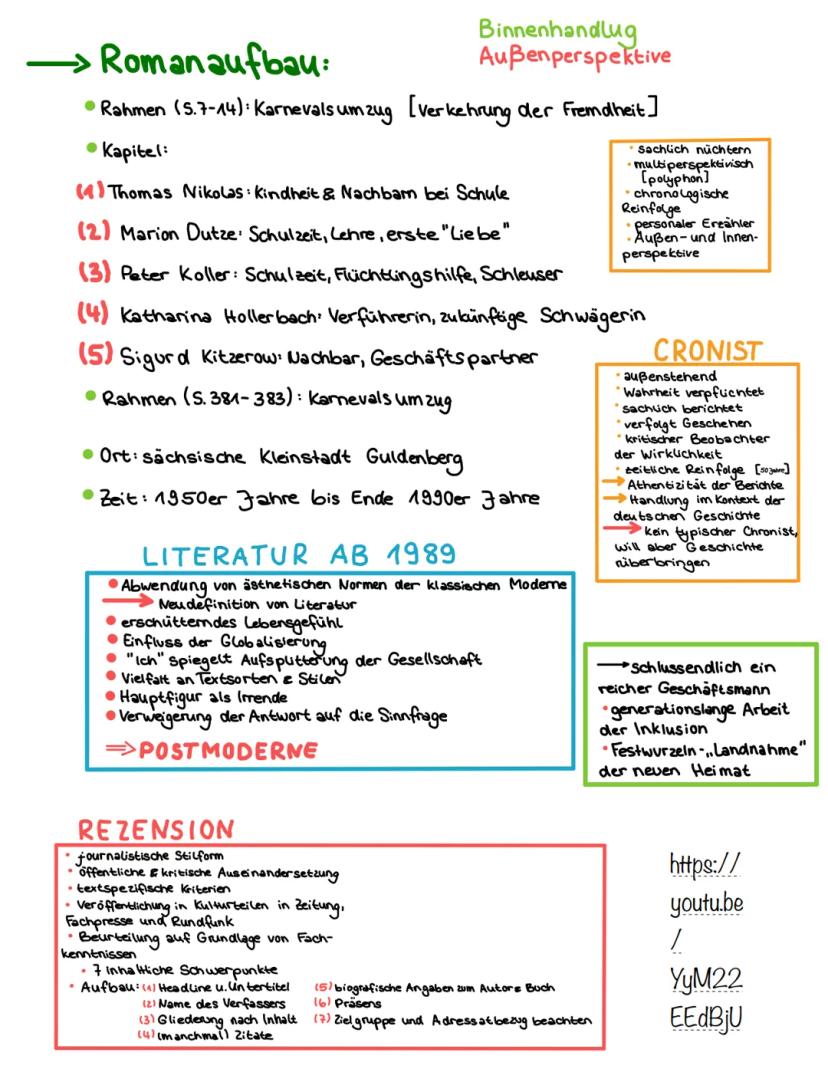 Binnenhandlug
Außenperspektive
→ Romanaufbau:
• Rahmen (S.7-14): Karnevalsumzug [Verkehrung der Fremdheit]
• Kapitel:
(1) Thomas Nikolas: Kindheit & Nachbarn bei Schule
(2) Marion Dutze: Schulzeit, Lehre, erste "Liebe"
(3) Peter Koller: Schulzeit, Flüchtlingshilfe, Schleuser
(4) Katharina Hollerbach: Verführerin, zukünftige Schwägerin
(5) Sigurd Kitzerow: Nachbar, Geschäftspartner
• Rahmen (S. 381-383): Karnevalsumzug
• Ort: sächsische Kleinstadt Guldenberg
• Zeit: 1950er Jahre bis Ende 1990er Jahre
• sachlich nüchtern
• multiperspektivisch
[polyphon]
• chronologische
Reinfolge
• personaler Erzähler
• Außen- und Innen-
perspektive
CRONIST
• außenstehend
• Wahrheit verpflichtet
• sachlich berichtet
• verfolgt Geschehen
• kritischer Beobachter
der Wirklichkeit
• zeitliche Reinfolge [50 Jahre]
→ Athentizität der Berichte
→ Handlung im Kontext der
deutschen Geschichte
→ Kein typischer Chronist,
will aber Geschichte
rüberbringen
LITERATUR AB 1989
• Abwendung von ästhetischen Normen der klassischen Moderne
→ Neudefinition von Literatur
• erschütterndes Lebensgefühl
• Einfluss der Globalisierung
• "Ich" spiegelt Aufsplitterung der Gesellschaft
• Vielfalt an Textsorten & Stilen
• Hauptfigur als Irrende
• Verweigerung der Antwort auf die Sinnfrage
⇒ POSTMODERNE
→ schlussendlich ein
reicher Geschäftsmann
• generationslange Arbeit
der Inklusion
• Festwurzeln-„Landnahme"
der neuen Heimat
REZENSION
• journalistische Stilform
• öffentliche & kritische Auseinandersetzung
• textspezifische Kriterien
• Veröffentlichung in Kulturteilen in Zeitung,
Fachpresse und Rundfunk
• Beurteilung auf Grundlage von Fach-
kenntnissen
• 7 inhaltliche Schwerpunkte
• Aufbau: (1) Headline u. Untertitel
(2) Name des Verfassers
(3) Gliederung nach Inhalt
(4) (manchmal) Zitate
(5) biografische Angaben zum Autor & Buch
(6) Präsens
(7) Zielgruppe und Adressatbezug beachten
https://
youtu.be
/
YyM22
EEdBjU